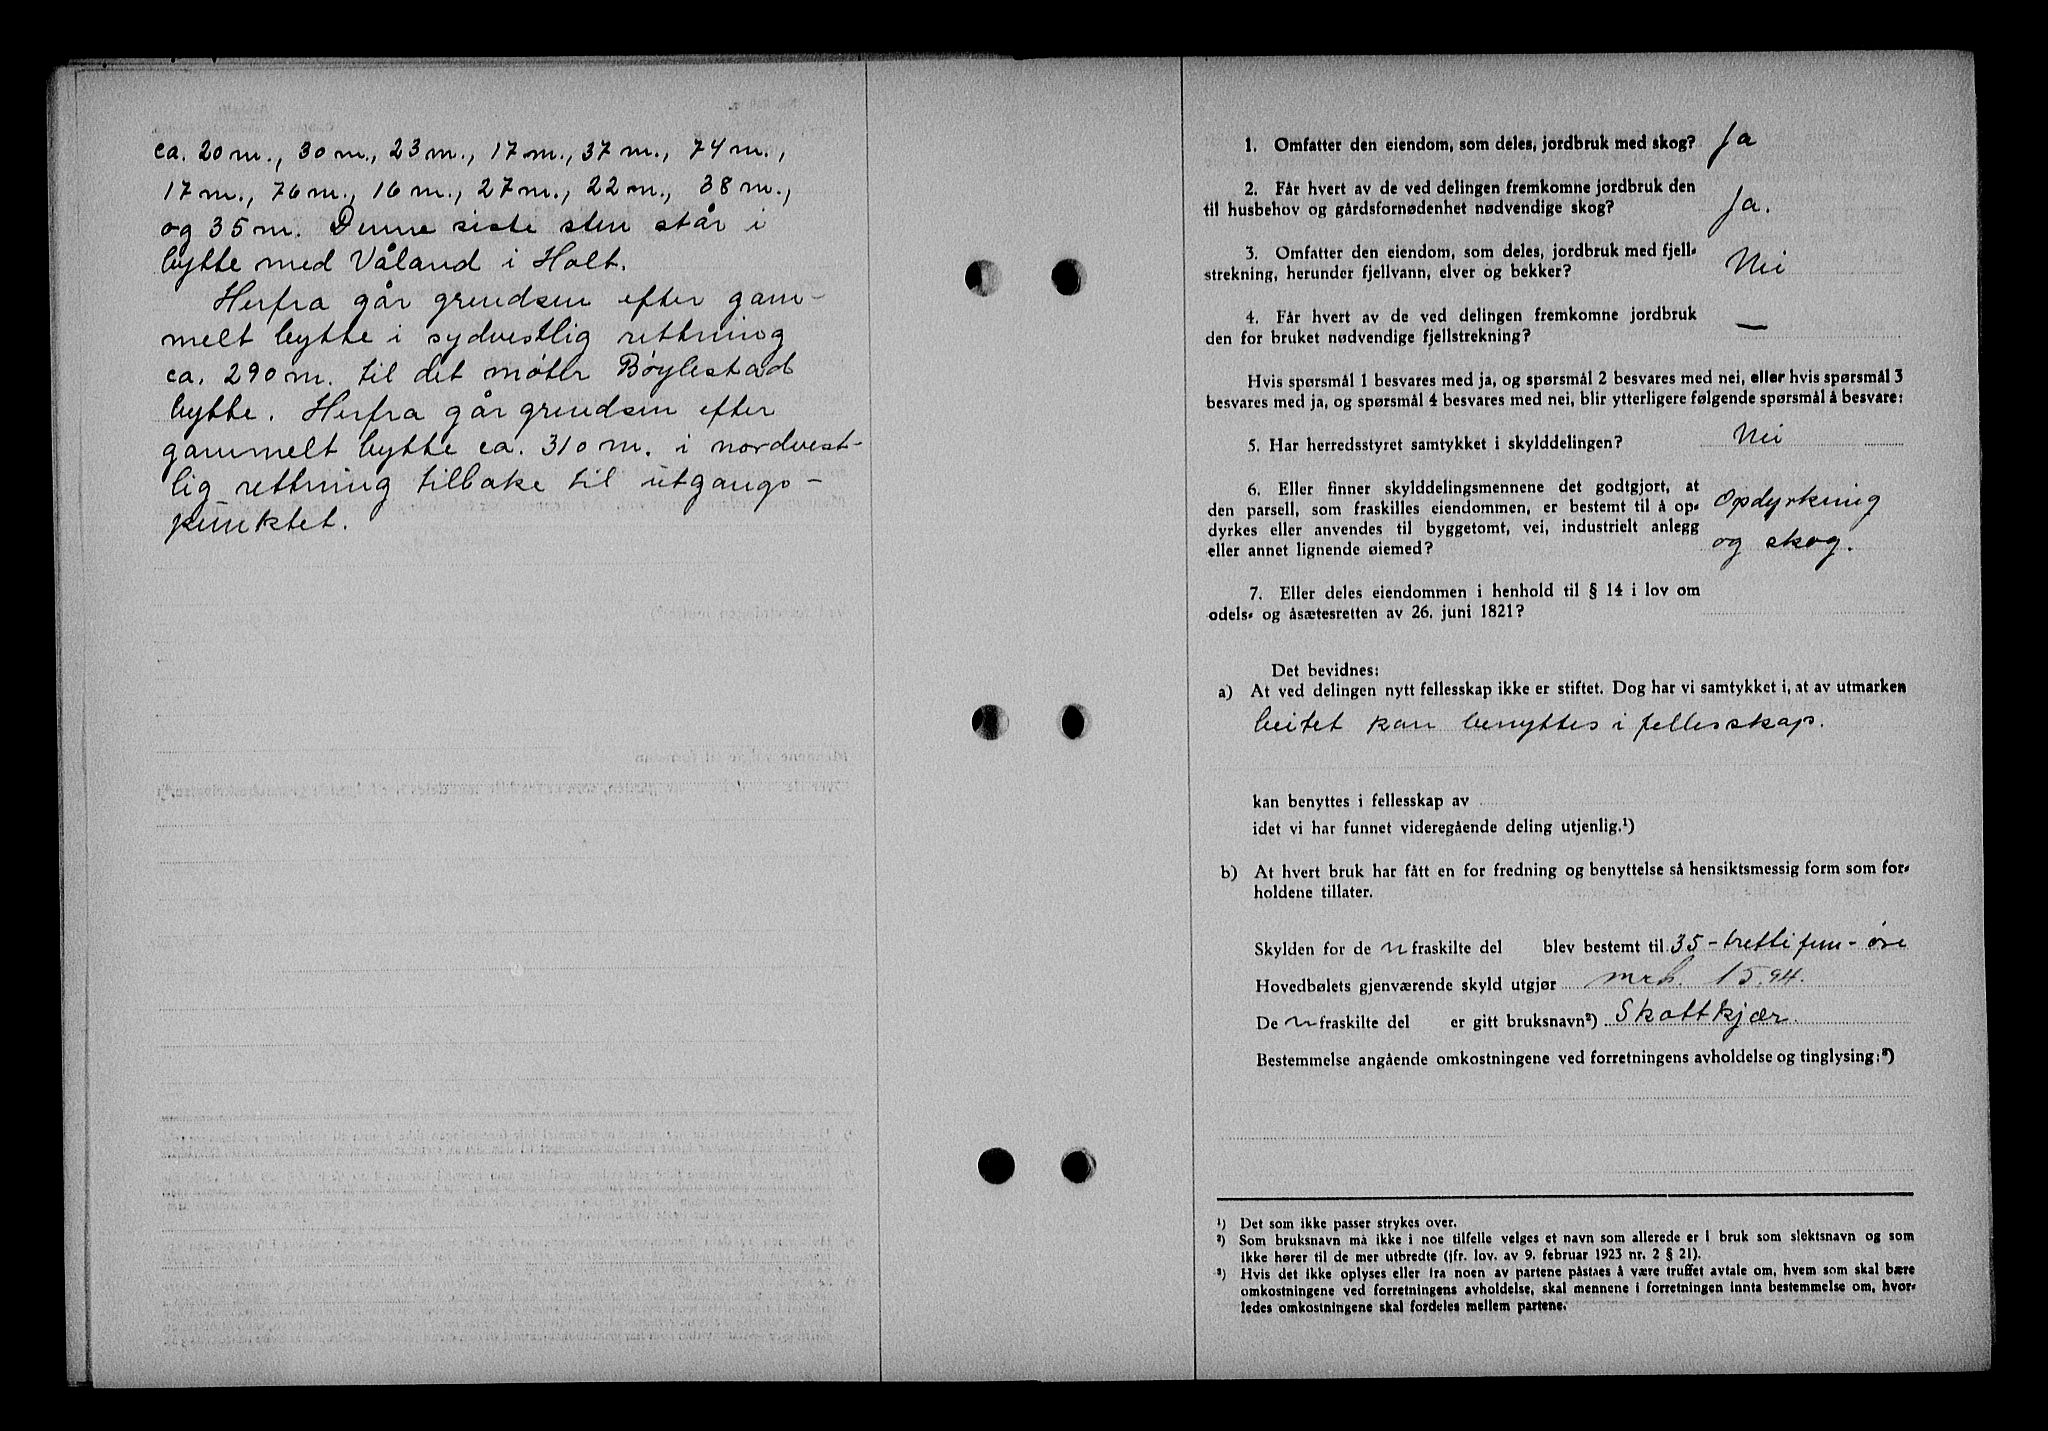 ca. 20 m., 30 m., 23 m., 17 m., 37 m., 74 m.,
17 m., 76 m., 16 m., 27 m., 22 m., 38 m.,
og 35 m. Denne siste sten står i
bytte med Våland i Holt.
Herfra går grendsen efter gam-
melt bytte i sydvestlig rettning
ca. 290 m. til det møter Bøylestad
bytte. Herfra går grendsen efter
gammelt bytte ca. 310 m. i nordvest-
lig rettning tilbake til utgangs-
punktet.
1. Omfatter den eiendom, som deles, jordbruk med skog? Ja
2. Får hvert av de ved delingen fremkomne jordbruk den
til husbehov og gårdsfornødenhet nødvendige skog? Ja.
3. Omfatter den eiendom, som deles, jordbruk med fjell-
strekning, herunder fjellvann, elver og bekker? Nei
4. Får hvert av de ved delingen fremkomne jordbruk
den for bruket nødvendige fjellstrekning? —
Hvis spørsmål 1 besvares med ja, og spørsmål 2 besvares med nei, eller hvis spørsmål 3
besvares med ja, og spørsmål 4 besvares med nei, blir ytterligere følgende spørsmål å besvare:
5. Har herredsstyret samtykket i skylddelingen? Nei
6. Eller finner skylddelingsmennene det godtgjort, at
den parsell, som fraskilles eiendommen, er bestemt til å op-
dyrkes eller anvendes til byggetomt, vei, industrielt anlegg
eller annet lignende øiemed?
Opdyrkning
og skog.
7. Eller deles eiendommen i henhold til § 14 i lov om
odels- og åsætesretten av 26. juni 1821?
Det bevidnes:
a) At ved delingen nytt fellesskap ikke er stiftet. Dog har vi samtykket i, at av utmarken
beitet kan benyttes i fellesskap.
kan benyttes i fellesskap av
idet vi har funnet videregående deling utjenlig.¹)
b) At hvert bruk har fått en for fredning og benyttelse så hensiktsmessig form som for-
holdene tillater.
Skylden for de n fraskilte del blev bestemt til 35 - trettifem - øre
Hovedbølets gjenværende skyld utgjør mrk. 15.94.
De n fraskilte del er gitt bruksnavn²) Skottkjær
Bestemmelse angående omkostningene ved forretningens avholdelse og tinglysing:³)
¹) Det som ikke passer strykes over.
²) Som bruksnavn må ikke i noe tilfelle velges et navn som allerede er i bruk som slektsnavn og som
ikke hører til de mer utbredte (jfr. lov. av 9. februar 1923 nr. 2 § 21).
³) Hvis det ikke oplyses eller fra noen av partene påstaes å være truffet avtale om, hvem som skal bære
omkostningene ved forretningens avholdelse, skal mennene i forretningen innta bestemmelse om, hvor-
ledes omkostningene skal fordeles mellem partene.